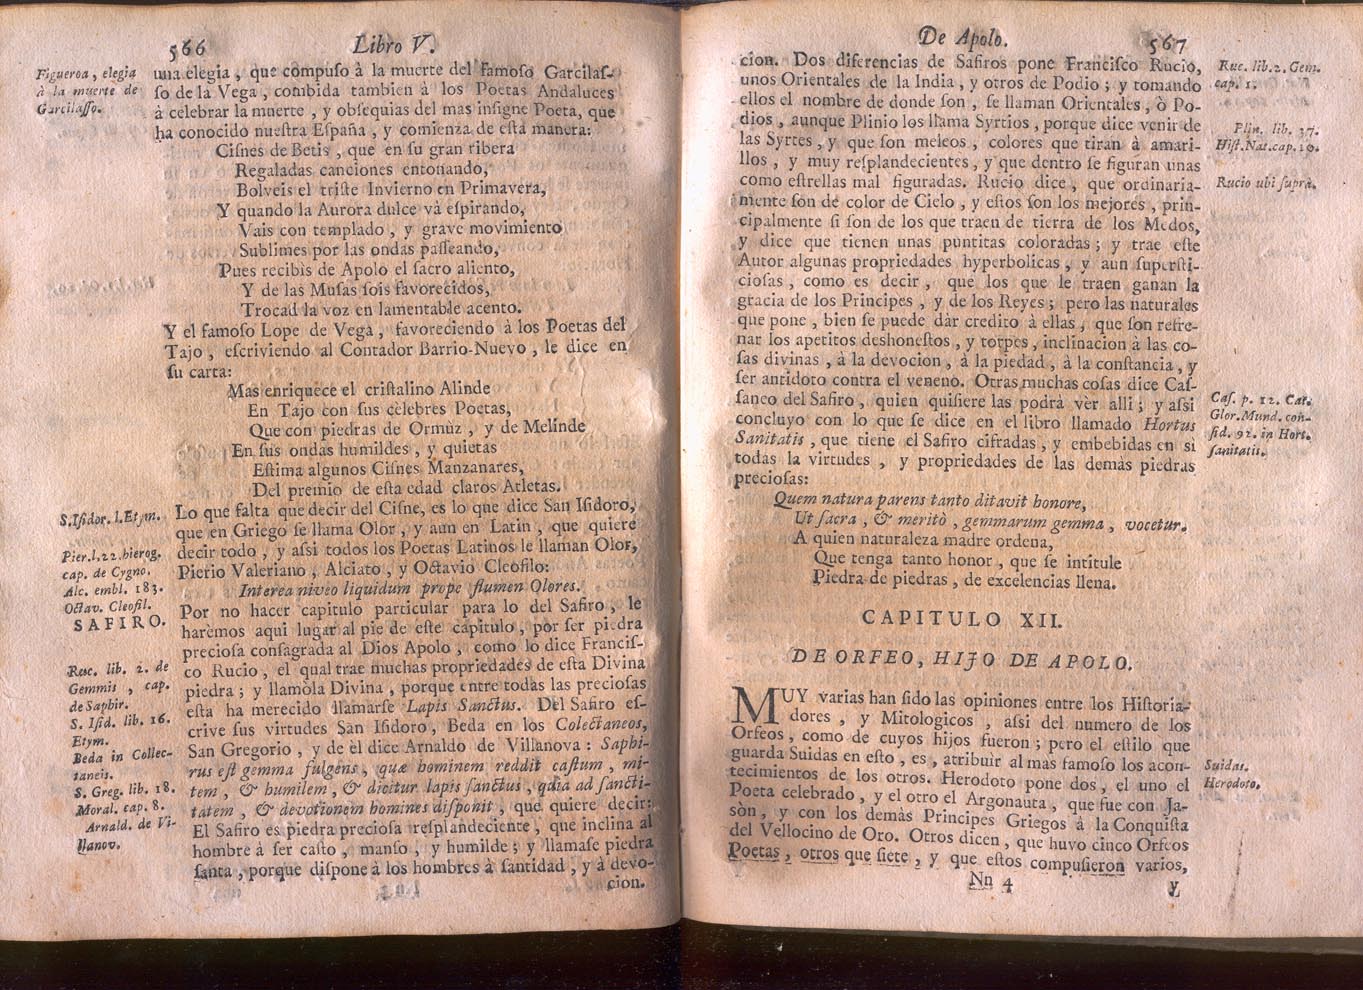 566 Libro V.
Figueroa, elegia
à la muerte de
Garcilasso.
una elegia, que compuſo à la muerte del famoſo Garcilaſ-
ſo de la Vega, combida tambien à los Poetas Andaluces
à celebrar la muerte, y obſequias del mas inſigne Poeta, que
ha conocido nueſtra Eſpaña, y comienza de eſta manera:
Ciſnes de Betis, que en ſu gran ribera
Regaladas canciones entonando,
Bolveis el triſte Invierno en Primavera,
Y quando la Aurora dulce và eſpirando,
Vais con templado, y grave movimiento
Sublimes por las ondas paſſeando,
Pues recibìs de Apolo el ſacro aliento,
Y de las Muſas ſois favorecidos,
Trocad la voz en lamentable acento.
Y el famoſo Lope de Vega, favoreciendo à los Poetas del
Tajo, eſcriviendo al Contador Barrio-Nuevo, le dice en
ſu carta:
Mas enriquece el criſtalino Alinde
En Tajo con ſus cèlebres Poetas,
Que con piedras de Ormùz, y de Melinde
En ſus ondas humildes, y quietas
Eſtima algunos Ciſnes Manzanares,
Del premio de eſta edad claros Atletas.
S. Iſidor. l. Etym.
Pier. l. 22. hierog.
cap. de Cygno.
Alc. embl. 183.
Octav. Cleofil.
Lo que falta que decir del Ciſne, es lo que dice San Iſidoro,
que en Griego ſe llama Olor, y aun en Latin, que quiere
decir todo, y aſsi todos los Poetas Latinos le llaman Olor,
Pierio Valeriano, Alciato, y Octavio Cleofilo:
Interea niveo liquidum prope flumen Olores.
SAFIRO.
Ruc. lib. 2. de
Gemmis, cap.
de Saphir.
S. Iſid. lib. 16.
Etym.
Beda in Collec-
taneis.
S. Greg. lib. 18.
Moral. cap. 8.
Arnald. de Vi-
llanov.
Por no hacer capitulo particular para lo del Safiro, le
harèmos aqui lugar al pie de eſte capitulo, por ſer piedra
precioſa conſagrada al Dios Apolo, como lo dice Franciſ-
co Rucio, el qual trae muchas propriedades de eſta Divina
piedra; y llamòla Divina, porque entre todas las precioſas
eſta ha merecido llamarſe Lapis Sanctus. Del Safiro eſ-
crive ſus virtudes San Iſidoro, Beda en los Colectaneos,
San Gregorio, y de èl dice Arnaldo de Villanova: Saphi-
rus eſt gemma fulgens, quæ hominem reddit caſtum, mi-
tem, & humilem, & dicitur lapis ſanctus, quia ad ſancti-
tatem, & devotionem homines diſponit, que quiere decir:
El Safiro es piedra precioſa reſplandeciente, que inclina al
hombre à ſer caſto, manſo, y humilde; y llamaſe piedra
ſanta, porque diſpone à los hombres à ſantidad, y à devo-
cion.
De Apolo. 567
cion. Dos diferencias de Safiros pone Franciſco Rucio,
unos Orientales de la India, y otros de Podio; y tomando
ellos el nombre de donde ſon, ſe llaman Orientales, ò Po-
dios, aunque Plinio los llama Syrtios, porque dice venir de
las Syrtes, y que ſon meleos, colores que tiran à amari-
llos, y muy reſplandecientes, y que dentro ſe figuran unas
como eſtrellas mal figuradas. Rucio dice, que ordinaria-
mente ſon de color de Cielo, y eſtos ſon los mejores, prin-
cipalmente ſi ſon de los que traen de tierra de los Medos,
y dice que tienen unas puntitas coloradas; y trae eſte
Autor algunas propriedades hyperbolicas, y aun ſuperſti-
cioſas, como es decir, que los que le traen ganan la
gracia de los Principes, y de los Reyes; pero las naturales
que pone, bien ſe puede dàr credito à ellas, que ſon refre-
nar los apetitos deshoneſtos, y torpes, inclinacion à las co-
ſas divinas, à la devocion, à la piedad, à la conſtancia, y
ſer antidoto contra el veneno. Otras muchas coſas dice Caſ-
ſaneo del Safiro, quien quiſiere las podrà vèr alli; y aſsi
concluyo con lo que ſe dice en el libro llamado Hortus
Sanitatis, que tiene el Safiro cifradas, y embebidas en sì
todas la virtudes, y propriedades de las demàs piedras
precioſas:
Ruc. lib. 2. Gem.
cap. 1.
Plin. lib. 37.
Hiſt. Nat. cap. 10.
Rucio ubi ſuprà.
Caſ. p. 12. Cat.
Glor. Mund. con-
ſid. 92. in Hort.
ſanitatis.
Quem natura parens tanto ditavit honore,
Ut ſacra, & meritò, gemmarum gemma, vocetur.
A quien naturaleza madre ordena,
Que tenga tanto honor, que ſe intitule
Piedra de piedras, de excelencias llena.
CAPITULO XII.
DE ORFEO, HIJO DE APOLO.
MUY varias han ſido las opiniones entre los Hiſtoria-
dores, y Mitologicos, aſsi del numero de los
Orfeos, como de cuyos hijos fueron; pero el eſtilo que
guarda Suidas en eſto, es, atribuir al mas famoſo los acon-
tecimientos de los otros. Herodoto pone dos, el uno el
Poeta celebrado, y el otro el Argonauta, que fue con Ja-
sòn, y con los demàs Principes Griegos à la Conquiſta
del Vellocino de Oro. Otros dicen, que huvo cinco Orfeos
Poetas, otros que ſiete, y que eſtos compuſieron varios,
Suidas.
Herodoto.
Nn 4 y